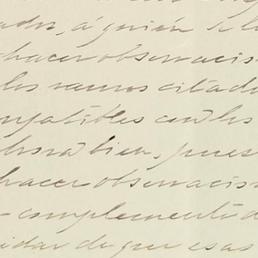 ados, á quién se l
hacer observacio
los ramos citado
mpatibles con los
hora bien, pues
hacer observacion
- complemento d
idar de que esas